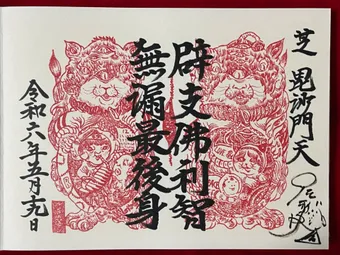 芝 毘沙門天
辟支佛利智
無漏最後身
令和六年五月十九日